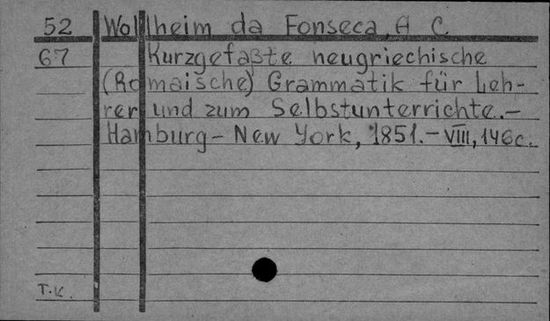 52 Wollheim da Fonseca, A C.
67 Kurzgefaßte neugriechische
(Romaische) Grammatik für Leh-
rer und zum Selbstunterrichte.-
Hamburg - New York, 1851.- VIII, 146c.
T.K.